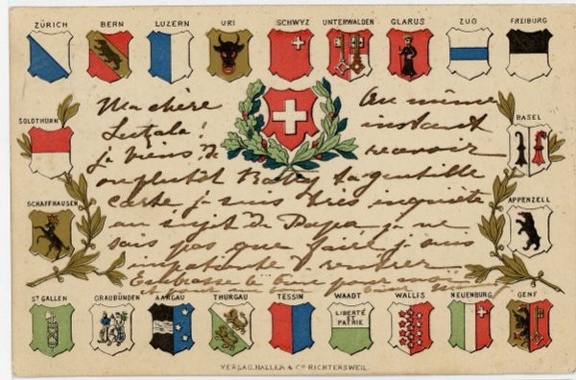 ZÜRICH BERN LUZERN URI SCHWYZ UNTERWALDEN GLARUS ZUG FREIBURG
Ma chère
Au même
instant
SOLOTHURN
BASEL
je viens de
recevoir
ou plutôt ta gentille
carte je suis très inquiète
SCHAFFHAUSEN
APPENZELL
au sujet de Papa, je ne
sais pas que faire je suis
impatiente de rentrer
Embrasse le pour moi
ST GALLEN GRAUBÜNDEN AARGAU THURGAU TESSIN WAADT WALLIS NEUENBURG GENF
LIBERTÉ
ET
PATRIE
VERLAG HALLER & Co RICHTERSWEIL.